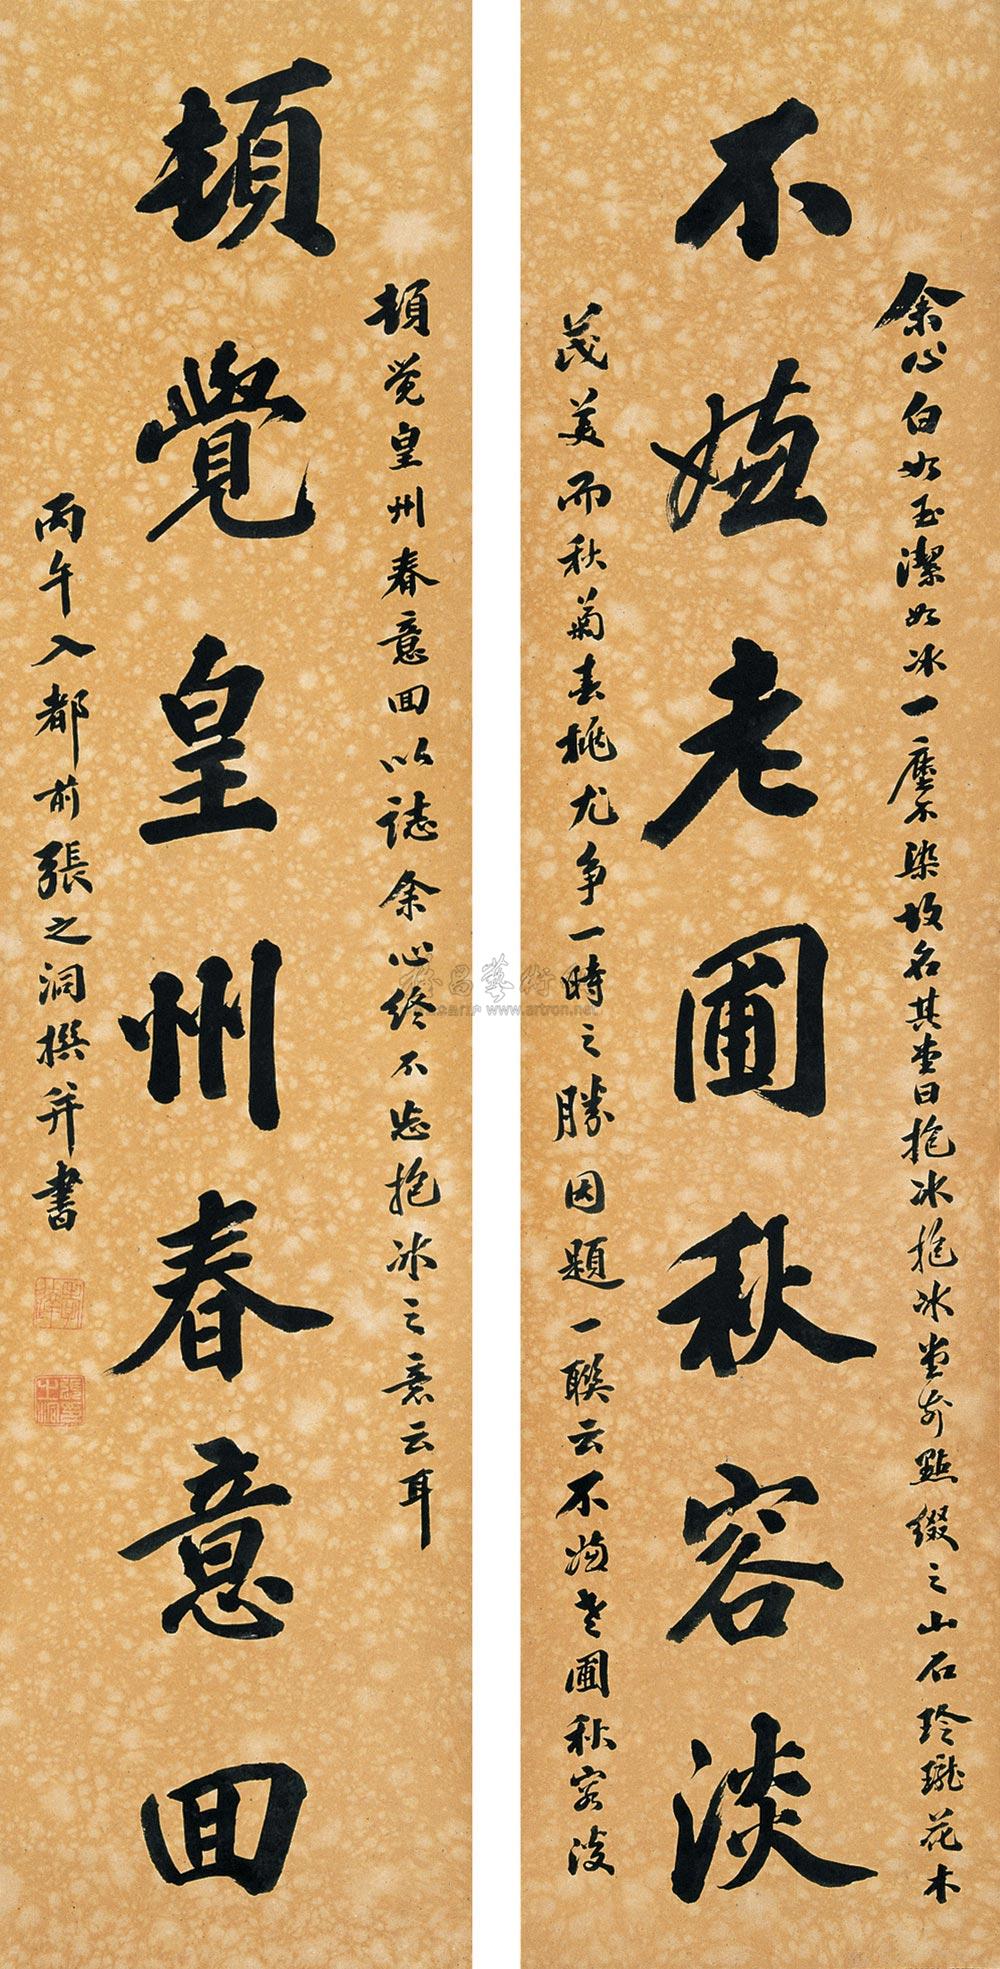 余心白如玉潔如冰一塵不染故名其堂曰抱冰抱冰堂前點綴之山石玲瓏花木
不嫌老圃秋容淡
茂美而秋菊春桃尤爭一時之勝因題一聯云不嫌老圃秋容淡
頓覺皇州春意回以誌余心終不忘抱冰之意云耳
頓覺皇州春意回
丙午入都前張之洞撰并書
雅昌藝術
www.artron.net